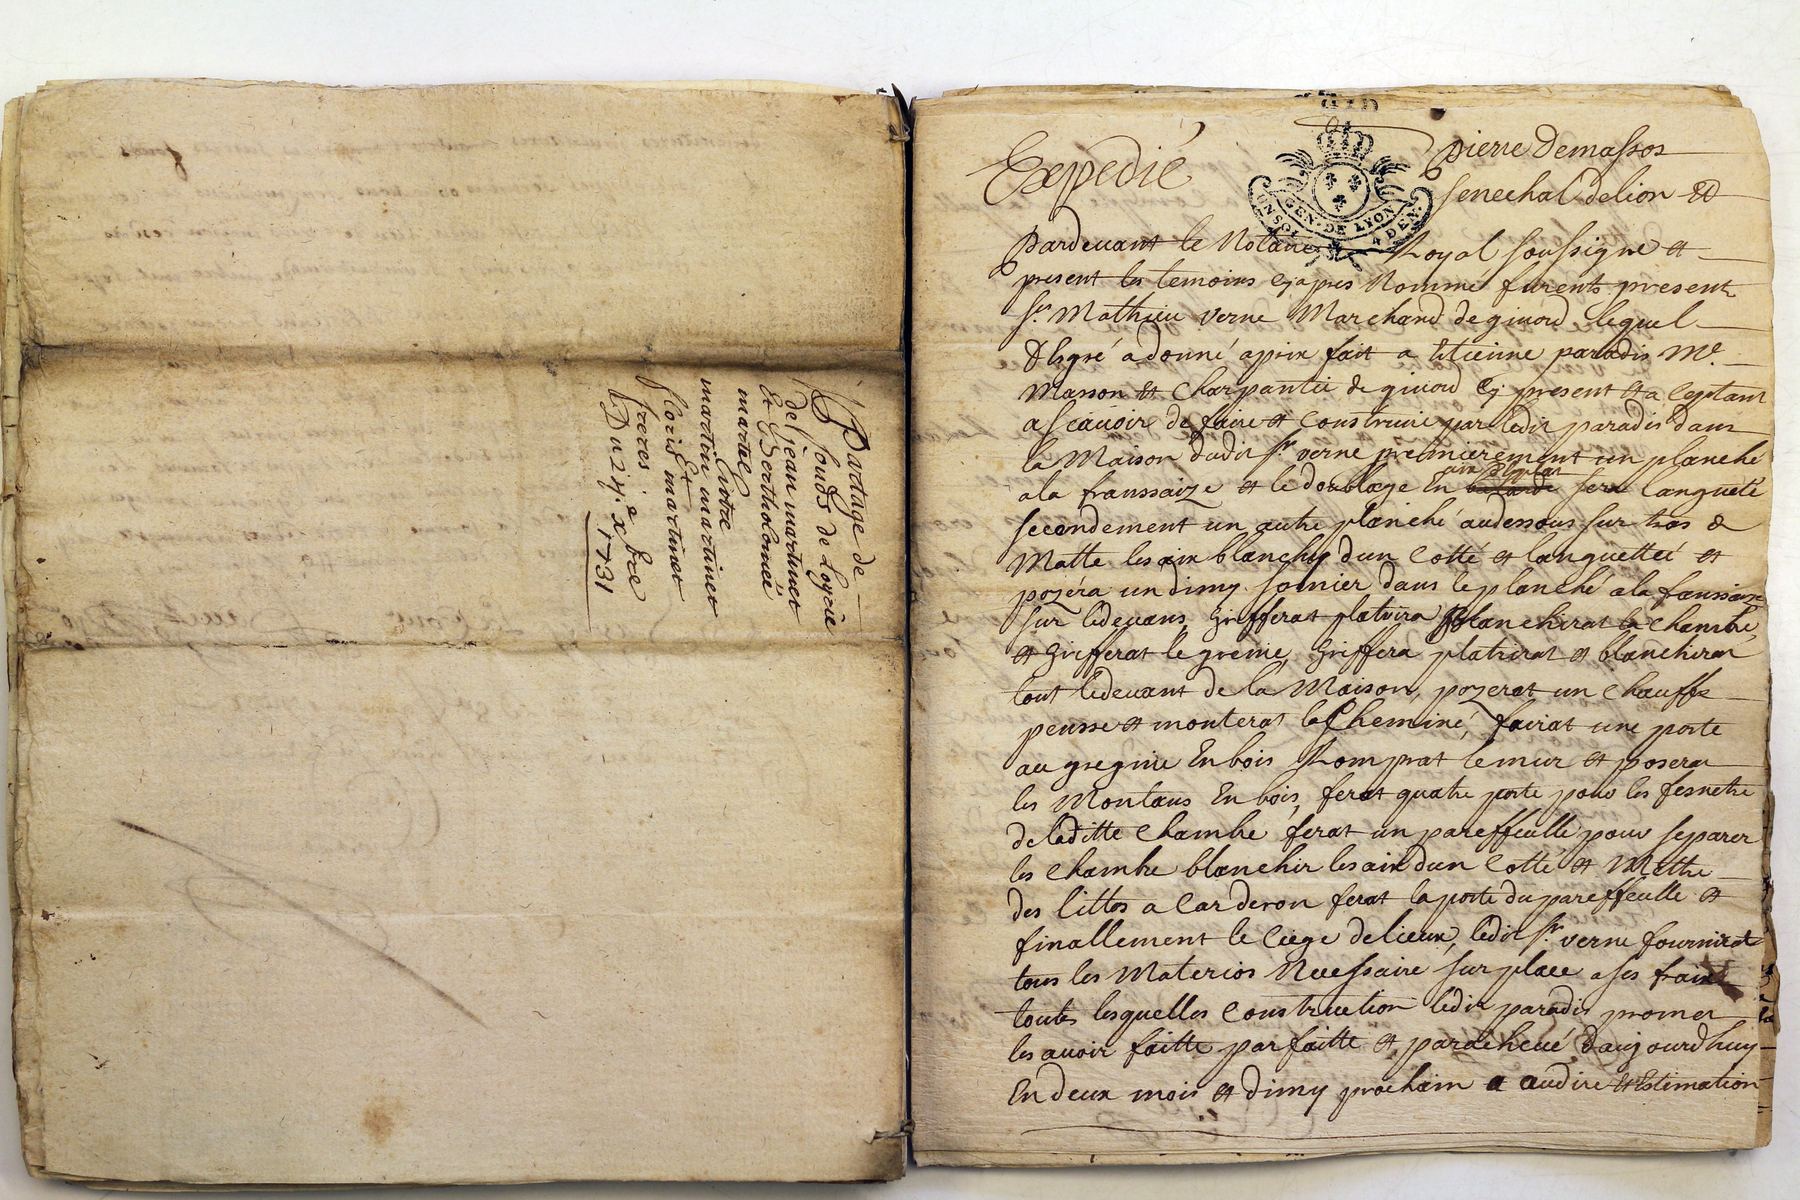 Partage de
fonds de Loyeüe
de Jean martinet
Et Bertholomée
martel
Entre
martin martinet
Et
floris martinet
freres
Du 24.e xbre
1731
Expedié
pierre Demassos
senechal de lion Et
GEN. DE LYON
4 DEN.
pardeuant le Notaire Royal soussigne et
present les temoins cyapres Nommé furents present
sr. Mathieu verne Marchand de giuord lequel
De gré a donné aprix fait a Etienne paradis Me.
Masson et Charpantié de giuord Cy present et a Ceptant
a scauoir de faire et Construire par ledit paradis dans
la Maison dudit sr. verne premierement un planché
ala franssaize et le doublage En sera langueté
secondement un autre planché audessous sur tras &
Matte les aix blanchy dun Cotté et languetteé et
pozéra un dimy somier dans le planché ala franssaize
sur ledeuans, Grifferat platrira blanchirat la chambre,
et Grifferat le grenie, Griffera platrirat et blanchira
tout ledeuant de la Maison, pozerat un chauffe
pensse et monterat la Cheminé, fairat une porte
au gregnie En bois Romprat le mur et posera
les Montans En bois, ferat quatre porte pour les fesnetre
de laditte Chambre ferat un pareffeulle pour separer
les chambre blanchir les aix dun Cotté et Mettre
des littos a Carderon ferat la porte du pareffeulle et
finallement le Ciege de lieux, ledit sr. verne fournirat
tous les Materios Necessaire sur place a ses frais
toutes lesquelles Construction ledit paradis promet
les auoir faitte parfaitte et paracheué daujourdhuy
En deux mois et dimy prochain a audire et Estimation